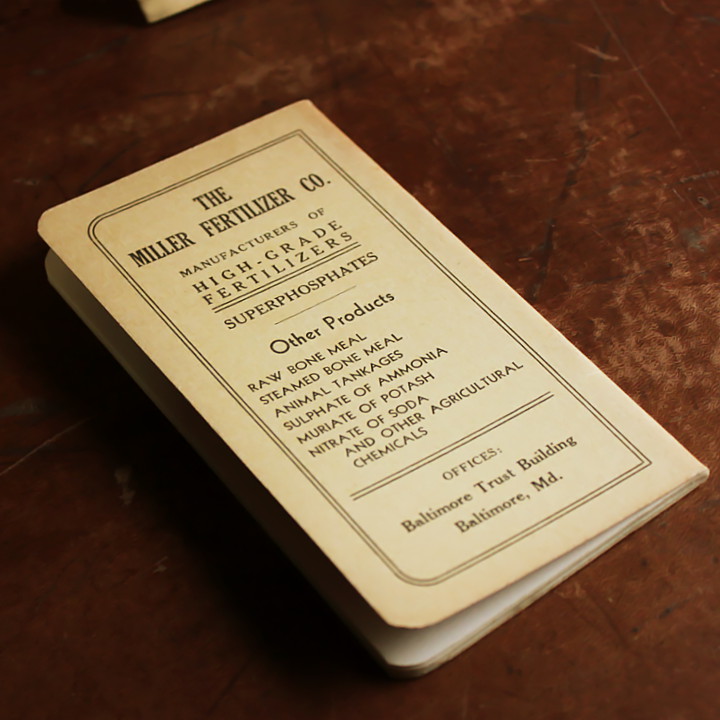 THE
MILLER FERTILIZER CO.
MANUFACTURERS OF
HIGH-GRADE
FERTILIZERS
SUPERPHOSPHATES
Other Products
RAW BONE MEAL
STEAMED BONE MEAL
ANIMAL TANKAGES
SULPHATE OF AMMONIA
MURIATE OF POTASH
NITRATE OF SODA
AND OTHER AGRICULTURAL
CHEMICALS
OFFICES:
Baltimore Trust Building
Baltimore, Md.